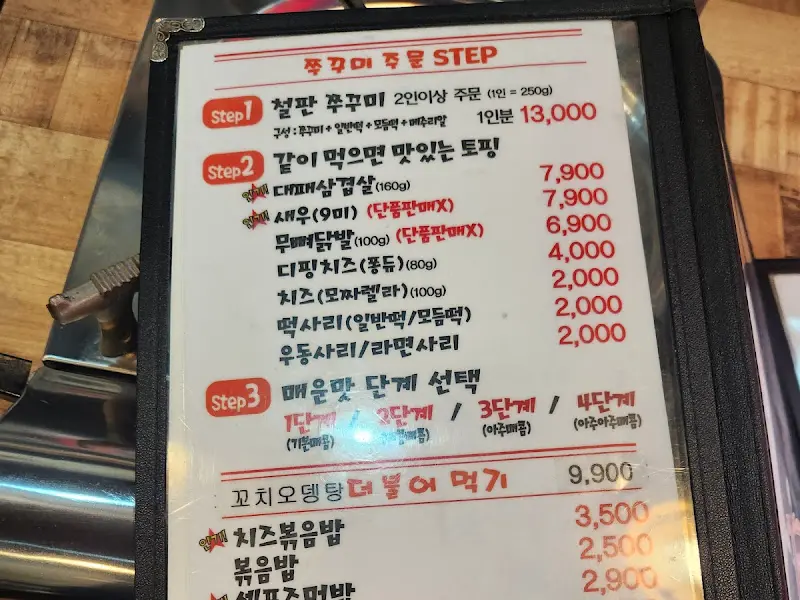 쭈꾸미 주문 STEP
Step1 철판 쭈꾸미 2인이상 주문 (1인 = 250g)
구성 : 쭈꾸미 + 일반떡 + 모듬떡 + 메추리알 1인분 13,000
Step2 같이 먹으면 맛있는 토핑
인기 대패삼겹살(160g) 7,900
인기 새우(9미) (단품판매X) 7,900
무뼈닭발(100g) (단품판매X) 6,900
디핑치즈(퐁듀)(80g) 4,000
치즈(모짜렐라)(100g) 2,000
떡사리(일반떡/모듬떡) 2,000
우동사리/라면사리 2,000
Step3 매운맛 단계 선택
1단계 / 2단계 / 3단계 / 4단계
(기본매콤) (아주매콤) (아주아주매콤)
꼬치오뎅탕 더불어 먹기 9,900
인기 치즈볶음밥 3,500
볶음밥 2,500
셀프주먹밥 2,900